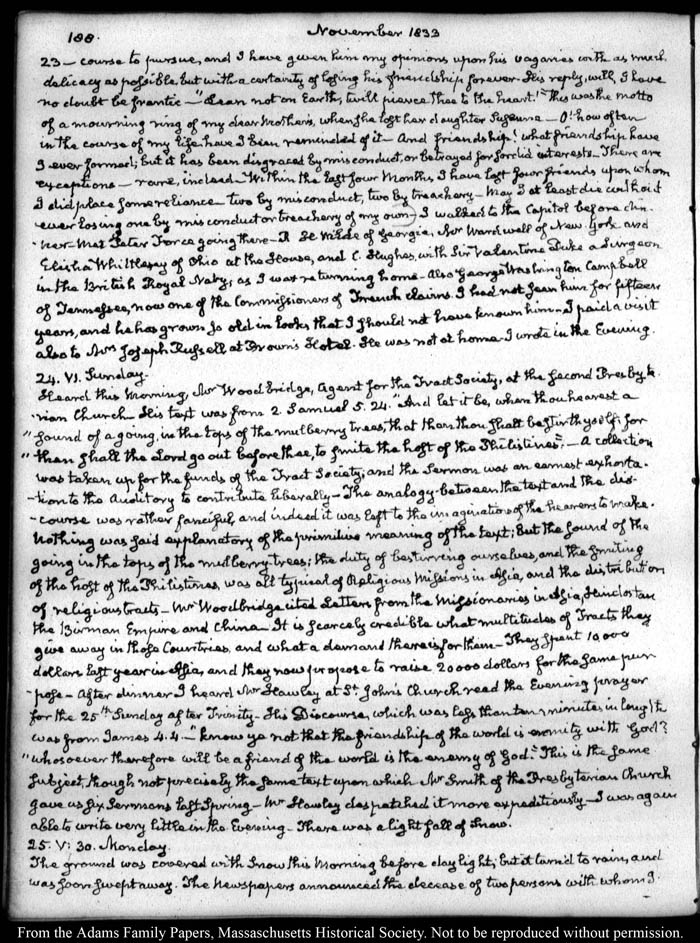 188.
November 1833
23 — course to pursue, and I have given him my opinions upon his vagaries with as much
delicacy as possible but with a certainty of losing his friendship forever. His reply, will, I have
no doubt be frantic — "Lean not on Earth, 'twill pierce thee to the heart!" This was the motto
of a mourning ring of my dear Mother's, when she lost her daughter Susanna — O! how often
in the course of my life have I been reminded of it — And friendship! what friendship have
I ever formed, but it has been disgraced by misconduct, or betrayed for sordid interests — There are
exceptions — rare, indeed — Within the last four Months, I have lost four friends upon whom
I did place some reliance — two by misconduct, two by treachery — May I at least die without
ever losing one by misconduct or treachery of my own — I walked to the Capitol before din-
ner. Met Peter Force going there — R H Wilde of Georgia, Mr Wardwell of New York and
Elisha Whittlesey of Ohio at the House, and C. Hughes, with Sir Valentine Duke a Surgeon
in the British Royal Navy, as I was returning home — Also George Washington Campbell
of Tennessee, now one of the Commissioners of French claims. I had not seen him for fifteen
years, and he has grown so old in looks that I should not have known him — I paid a visit
also to Mr Joseph Russell at Brown's Hotel. He was not at home — I wrote in the Evening.
24. VI. Sunday.
Heard this Morning, Mr Woodbridge, Agent for the Tract Society, at the second Presbyte-
rian Church — His text was from 2. Samuel 5. 24. "And let it be, when thou hearest a
"sound of a going, in the tops of the mulberry trees, that then thou shalt bestir thyself; for
"then shall the Lord go out before thee, to smite the host of the Philistines." — A collection
was taken up for the funds of the Tract Society, and the Sermon was an earnest exhorta-
-tion to the Auditory to contribute liberally — The analogy between the text and the dis-
-course was rather fanciful, and indeed it was left to the imagination of the hearers to make.
Nothing was said explanatory of the primitive meaning of the text; But the sound of the
going in the tops of the mulberry-trees; the duty of bestirring ourselves, and the smiting
of the host of the Philistines, was all typical of Religious Missions in Asia, and the distribution
of religious tracts — Mr Woodbridge cited Letters from the Missionaries in Asia, Hindostan
the Birman Empire and China — It is scarcely credible what multitudes of Tracts they
give away in those Countries, and what a demand there is for them — They spent 10,000
dollars last year in Asia, and they now propose to raise 20000 dollars for the same pur
-pose — After dinner I heard Mr Hawley at St. John's Church read the Evening prayer
for the 25th Sunday after Trinity — His Discourse, which was less than ten minutes in length
was from James 4. 4. — "know ye not that the friendship of the world is enmity with God?
"whosoever therefore will be a friend of the world is the enemy of God." This is the same
subject, though not precisely the same text upon which Mr Smith of the Presbyterian Church
gave us six Sermons last Spring — Mr Hawley despatched it more expeditiously — I was again
able to write very little in the Evening — There was a light fall of Snow.
25. V: 30. Monday.
The ground was covered with Snow this Morning before day light, but it turn'd to rain, and
was soon swept away. The Newspapers announced the decease of two persons with whom I
From the Adams Family Papers, Massachusetts Historical Society. Not to be reproduced without permission.